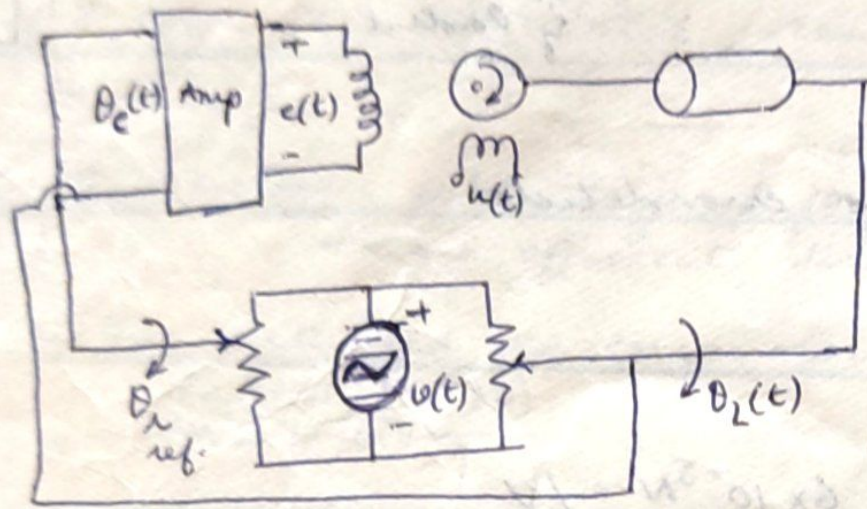 θe(t)
Amp
+
e(t)
-
u(t)
θr
ref.
+
v(t)
-
θL(t)